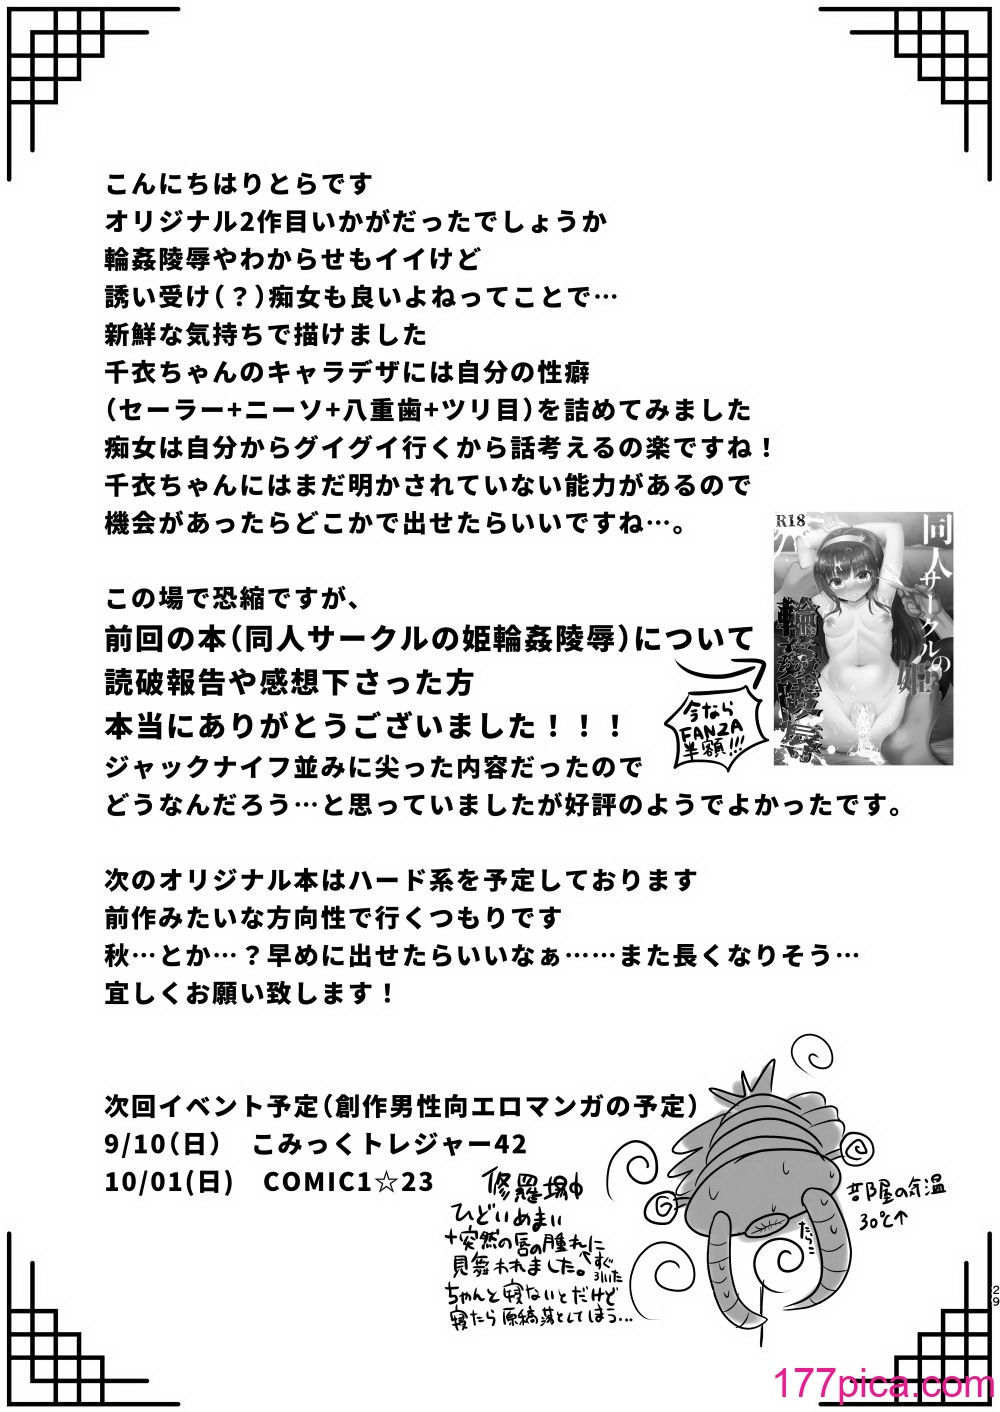 こんにちはりとらです
オリジナル2作目いかがだったでしょうか
輪姦陵辱やわからせもイイけど
誘い受け(?)痴女も良いよねってことで…
新鮮な気持ちで描けました
千衣ちゃんのキャラデザには自分の性癖
(セーラー+ニーソ+八重歯+ツリ目)を詰めてみました
痴女は自分からグイグイ行くから話考えるの楽ですね!
千衣ちゃんにはまだ明かされていない能力があるので
機会があったらどこかで出せたらいいですね…。
この場で恐縮ですが、
前回の本(同人サークルの姫輪姦陵辱)について
読破報告や感想下さった方
本当にありがとうございました!!!
ジャックナイフ並みに尖った内容だったので
どうなんだろう…と思っていましたが好評のようでよかったです。
R18
同人サークルの姫
輪姦陵辱
今なら
FANZA
半額!!!
次のオリジナル本はハード系を予定しております
前作みたいな方向性で行くつもりです
秋…とか…?早めに出せたらいいなぁ……また長くなりそう…
宜しくお願い致します!
次回イベント予定(創作男性向エロマンガの予定)
9/10(日) こみっくトレジャー42
10/01(日) COMIC1☆23
修羅場中
ひどいめまい
+突然の唇の腫れに
見舞われました。
すぐ
引いた
ちゃんと寝ないとだけど
寝たら原稿落としてしまう…
たらこ
部屋の気温
30℃↑
29
177pica.com